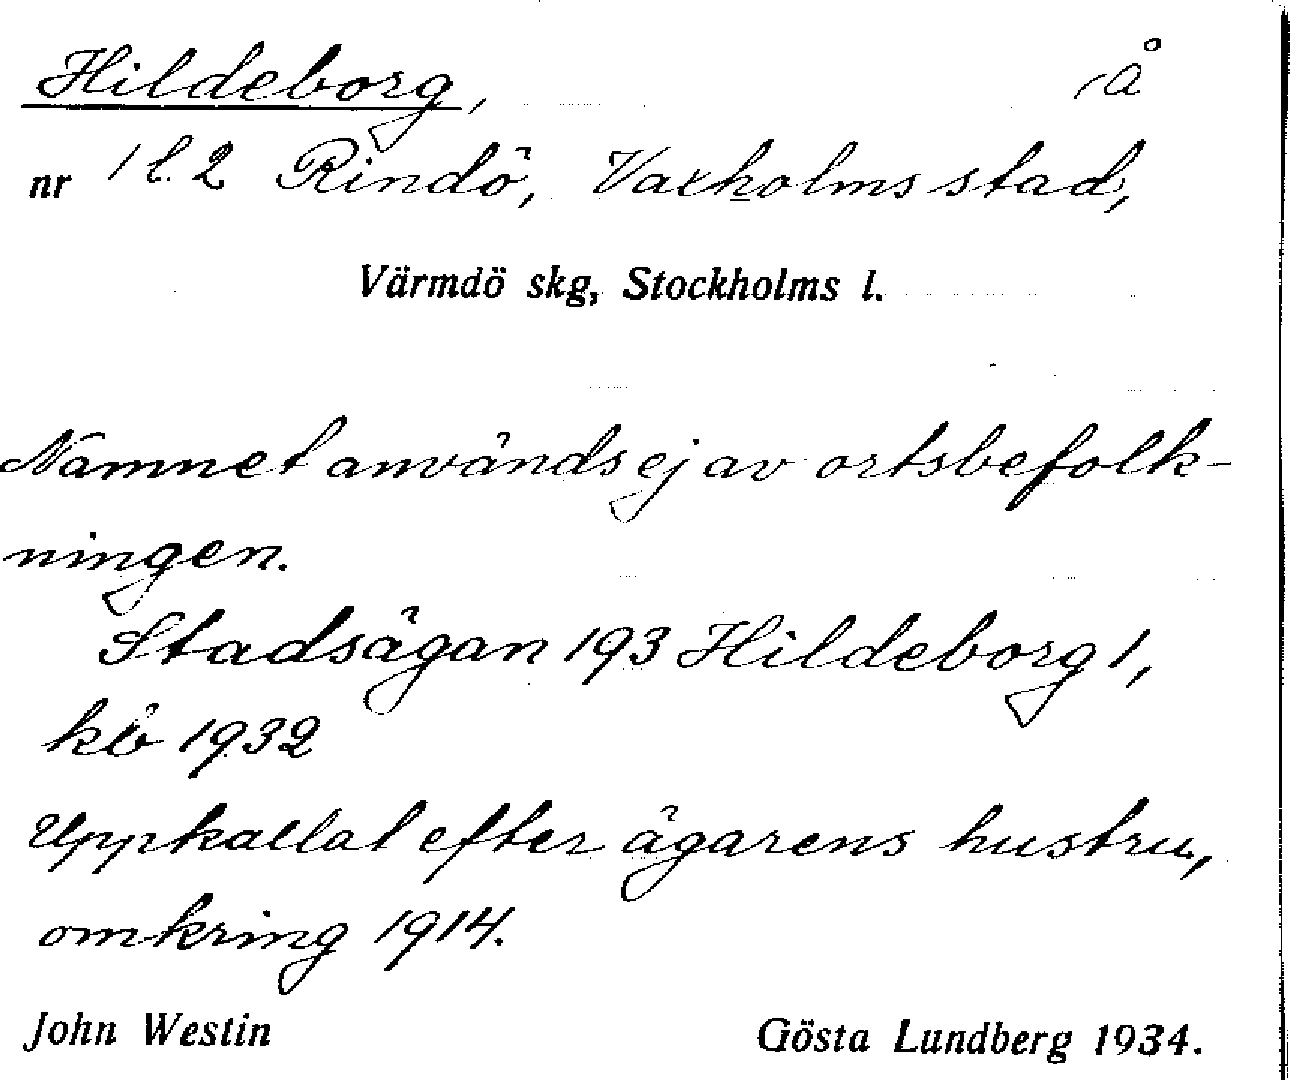 Hildeborg, å
nr 1 l. 2 Rindö, Vaxholms stad,
Värmdö skg, Stockholms l.
Namnet används ej av ortsbefolk-
ningen.
Stadsägan 193 Hildeborg 1,
kb 1932
Uppkallat efter ägarens hustru,
omkring 1914.
John Westin Gösta Lundberg 1934.